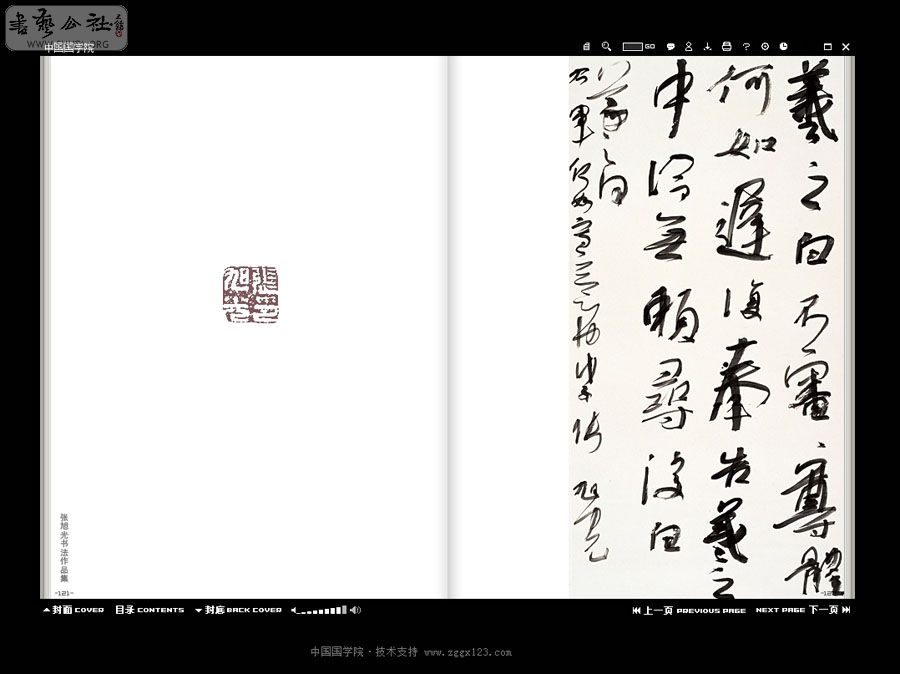 書藝公社
中国国学院
GO
羲之白不審尊體
何如遲復奉告羲之
中冷無賴尋復白
羲之白
右軍何如
旭光
张旭光书法作品集
-121-
封面 COVER 目录 CONTENTS 封底 BACK COVER 上一页 PREVIOUS PAGE NEXT PAGE 下一页
中国国学院·技术支持 www.zggx123.com